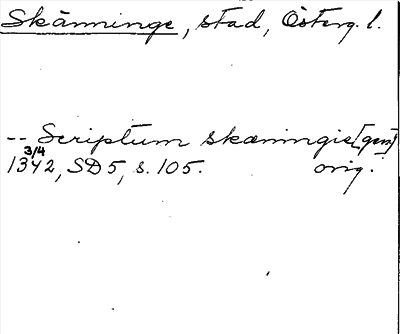 Skänninge, stad, Österg. l.
-- Scriptum skæningie [gen]
3/4
1342, SD 5, s. 105. orig.